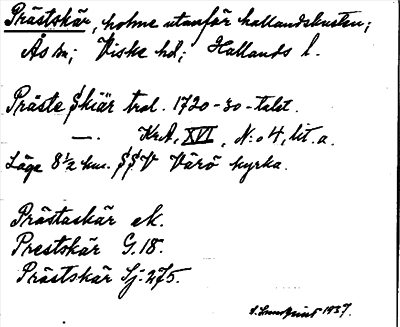 Prästskär, holme utanför hallandskusten;
Ås sn; Viske hd; Hallands l.
Präste Skiär trol. 1720-30-talet.
—. KrA, XVI, N:o 4, lit. a.
Läge 8½ km. SSV Värö kyrka.
Prästaskär ek.
Prestskär G. 18.
Prästskär Sj. 275.
1937.